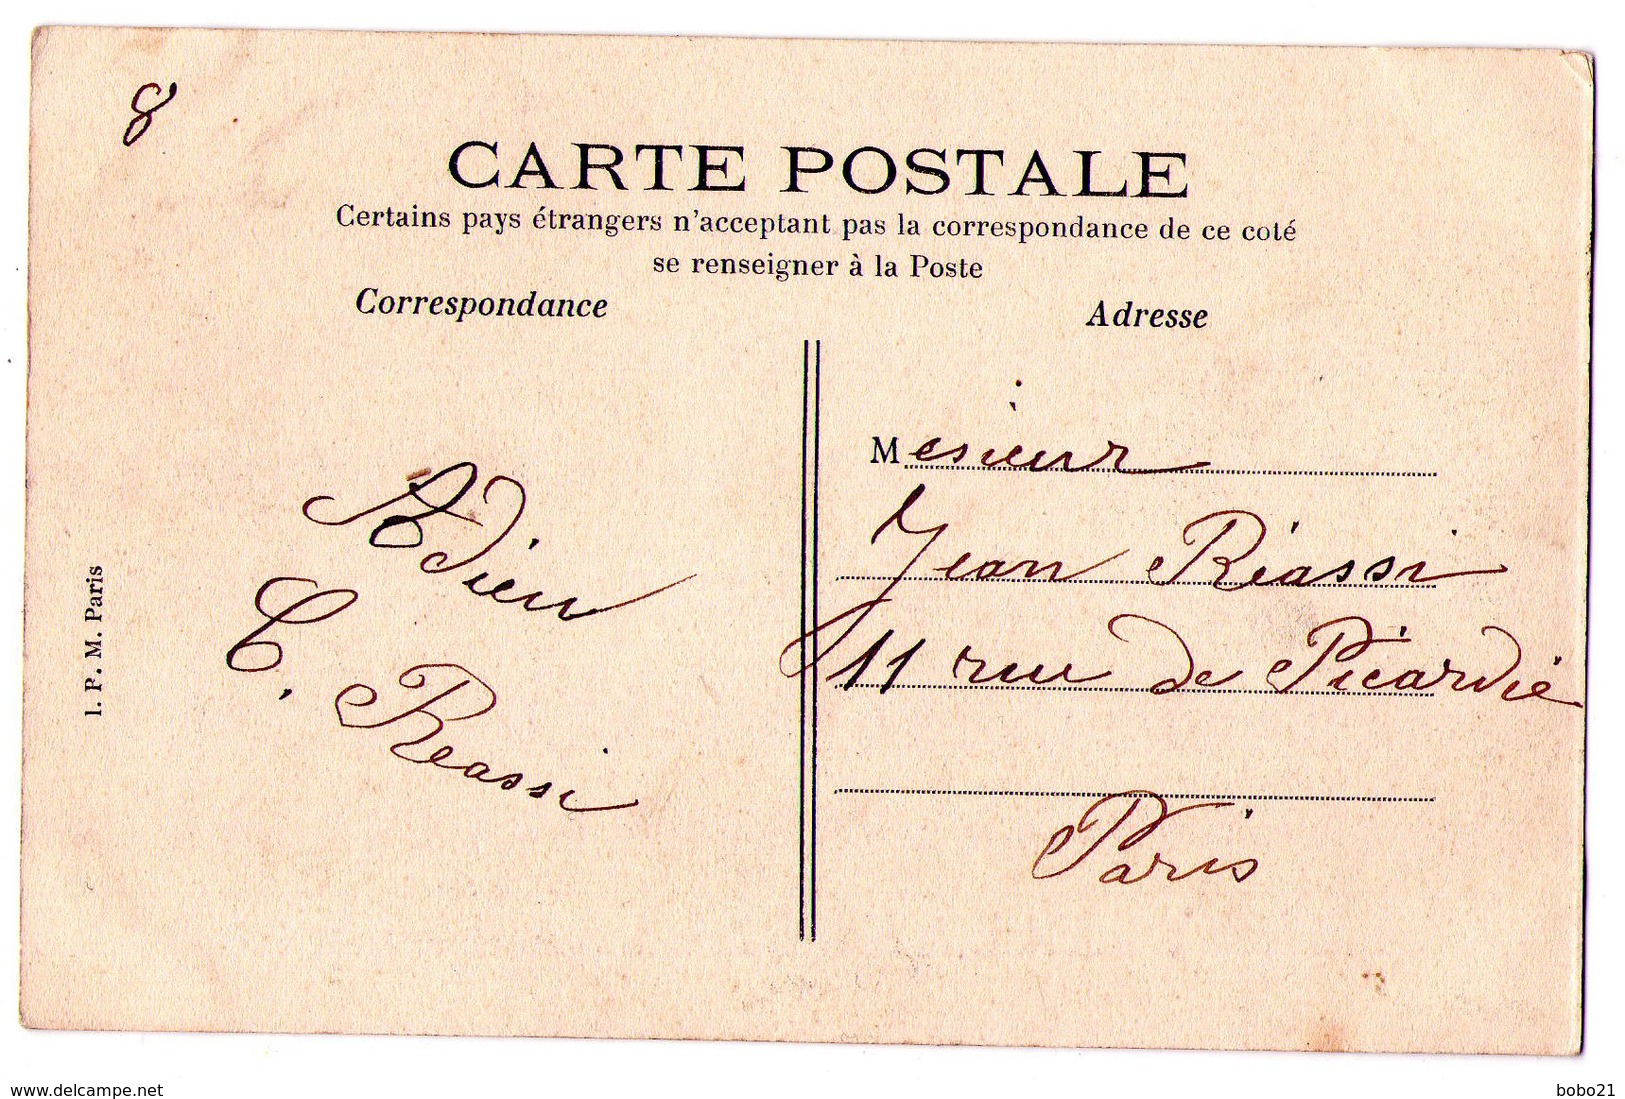 8
CARTE POSTALE
Certains pays étrangers n'acceptant pas la correspondance de ce coté
se renseigner à la Poste
Correspondance
Adresse
Adieu
C. Reassi
Mesieur
Jean Réassi
11 rue de Picardie
Paris
I. P. M. Paris
www.delcampe.net
bobo21